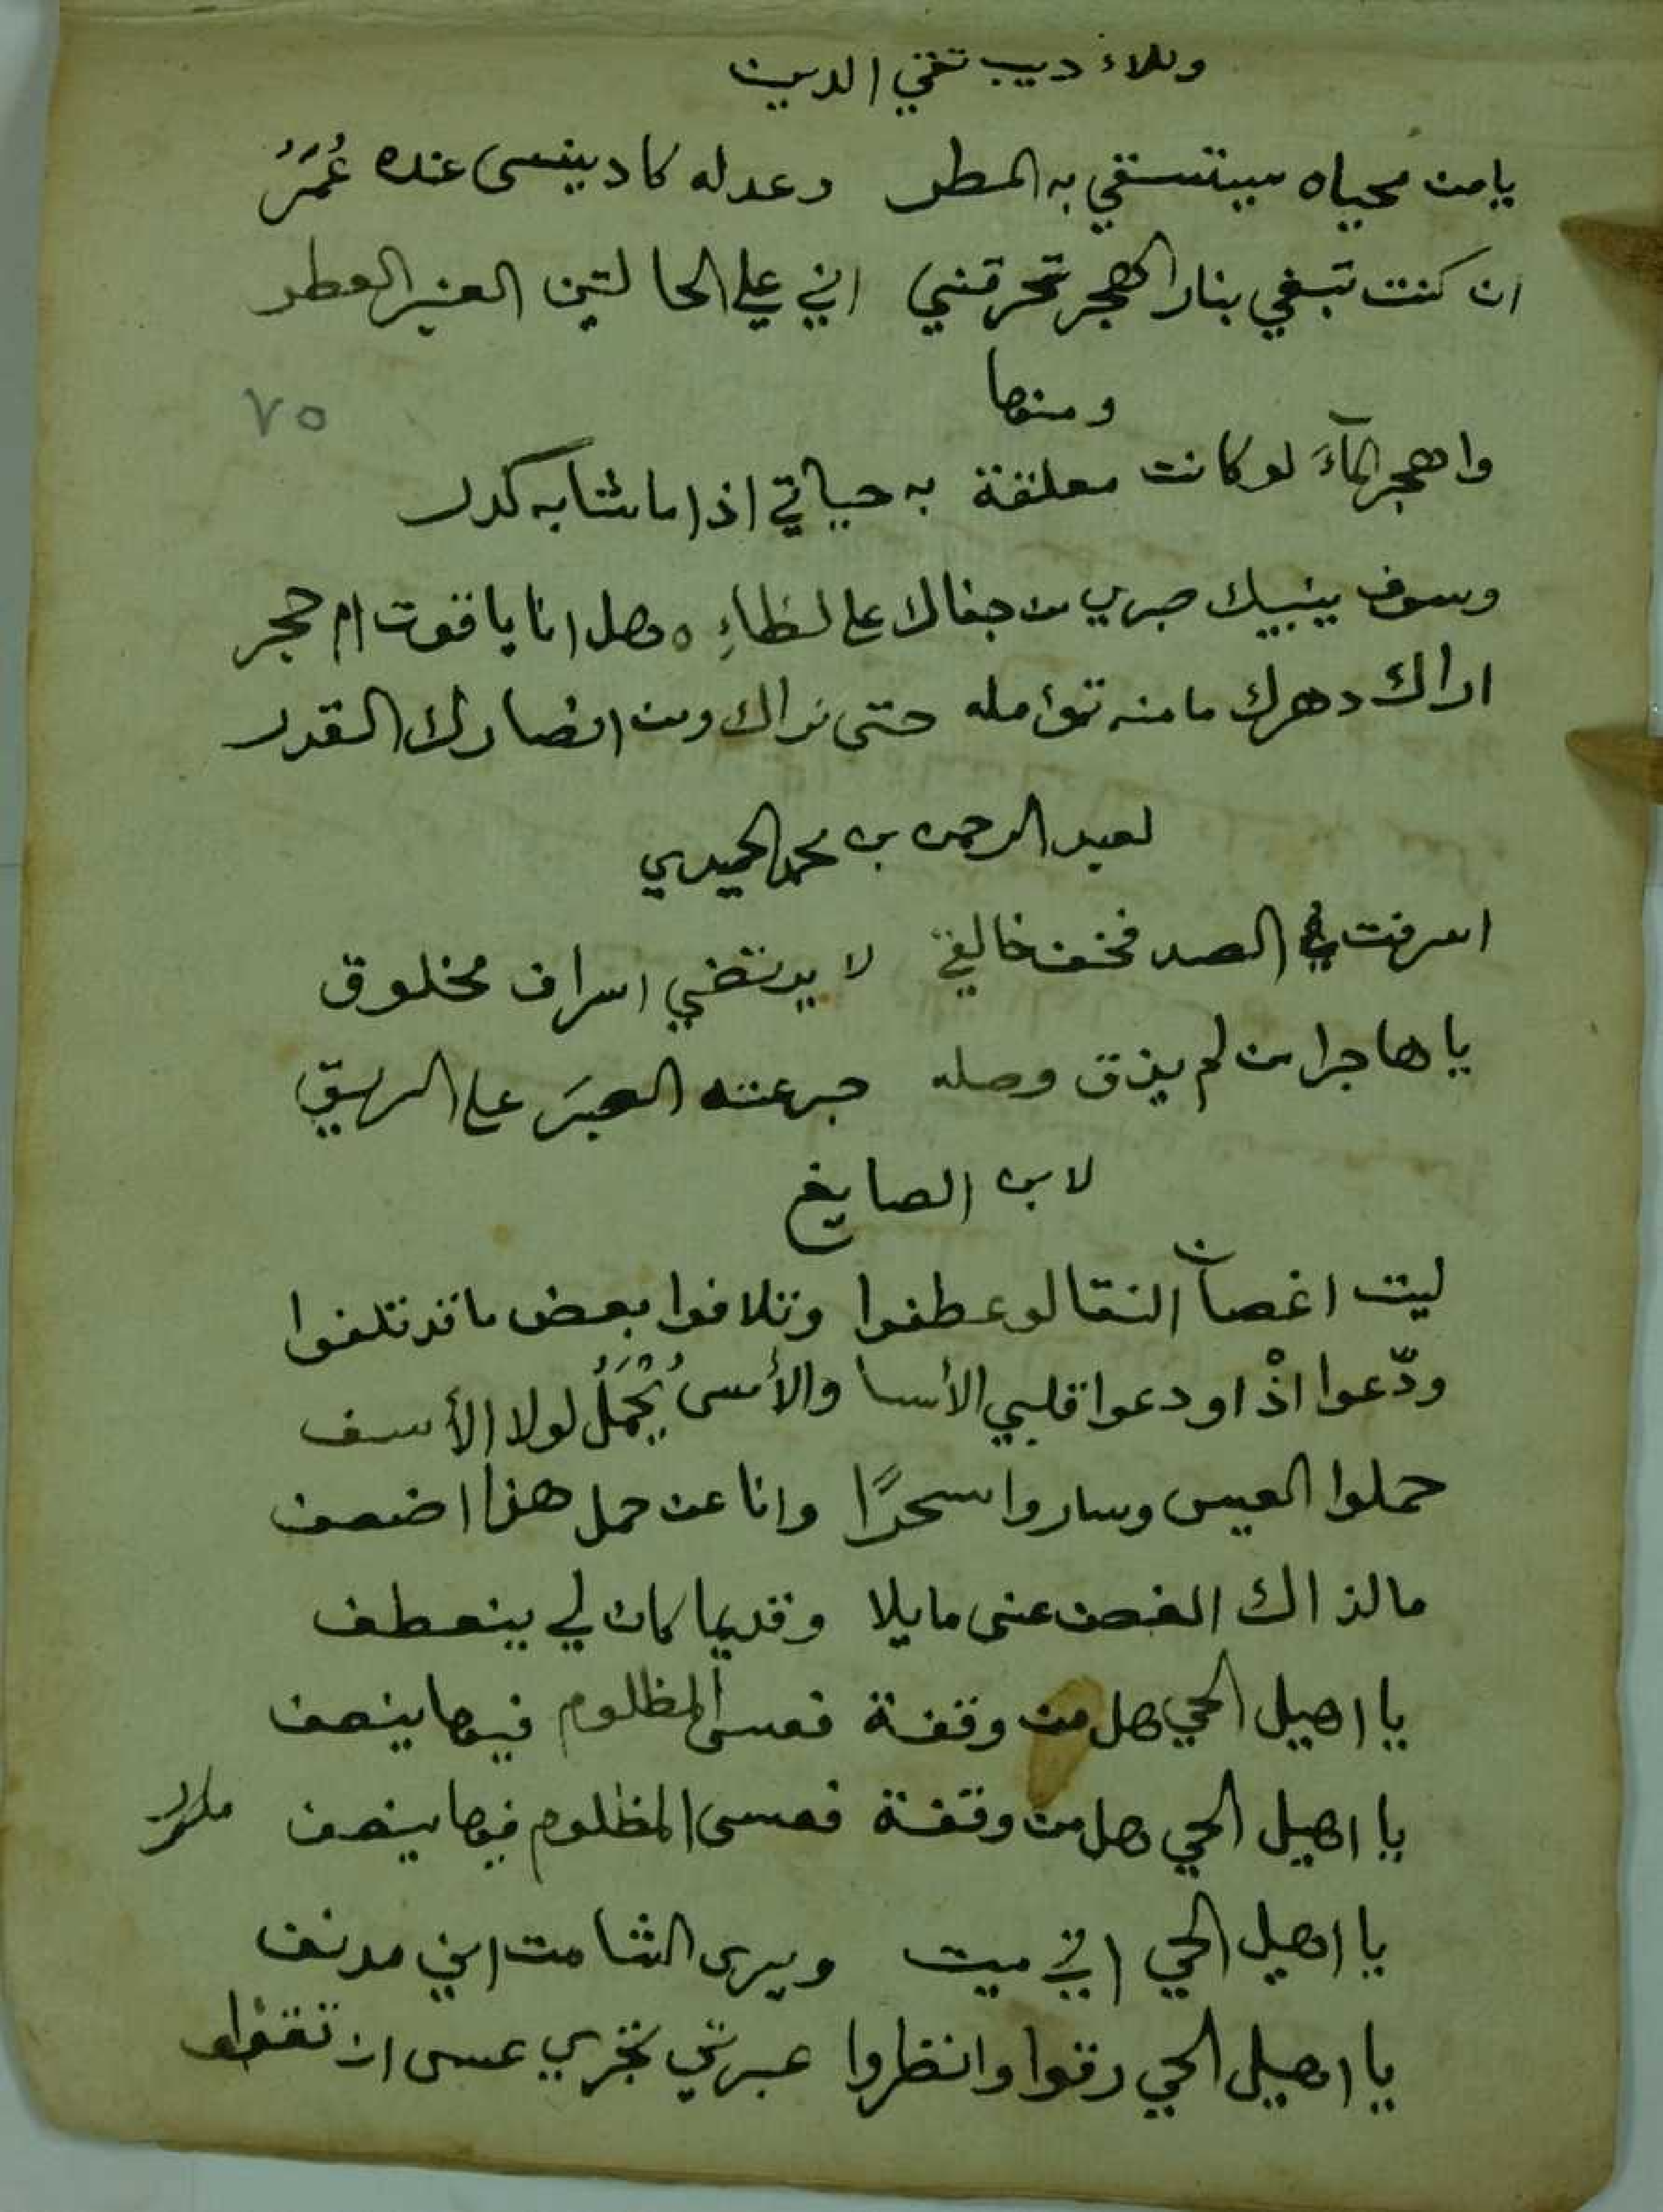 وللاديب تقي الدين
يا من محياه يستسقي به المطر وعدله كاد ينسى عنده عُمَرُ
ان كنت تبغي بنار الهجر تحرقني اني على الحالتين العنبر العطر
ومنها
٧٥
واهجر المآءَ لو كانت معلقة به حياتي اذا ما شابه كدر
وسوف ينبيك صبري من جفاك على لظاءِ ه وهل انا ياقوت ام حجر
اراك دهرك ما منه تؤمله حتى نراك ومن انصارك القدر
لعبد الرحمن بن محمد الحميدي
اسرفت في الصد فخف خالقي لا يرتضي اسراف مخلوق
يا هاجرا من لم يذق وصله جرعته الصبَر على الريق
لابن الصايغ
ليت اغصان النقا لو عطفوا وتلافوا بعض ما قد تلفوا
ودّعوا اذْ اودعوا قلبي الأسا والأسى يُحْمَلُ لولا الأسف
حملوا العيس وساروا سحرًا وانا عن حمل هذا اضعف
ما لذاك الغصن عنى مايلا وقديما كان لي ينعطف
يا اهيل الحي هل من وقفة فعسى المظلوم فيها ينصف
يا اهيل الحي هل من وقفة فعسى المظلوم فيها ينصف مكرر
يا اهيل الحي اني ميت ويرى الشامت اني مدنف
يا اهيل الحي رقوا وانظروا عبرتي تجري عسى ان تقفوا